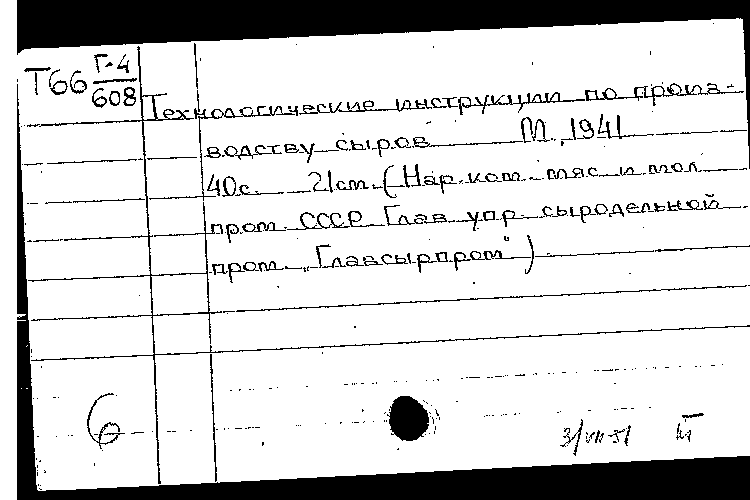 Т66 Г-4
608
Технологические инструкции по произ-
водству сыров М., 1941
40с. 21см. (Нар. ком. мяс и мол
пром. СССР. Глав упр. сыродельной
пром. „Главсырпром")
6
3/VII-51